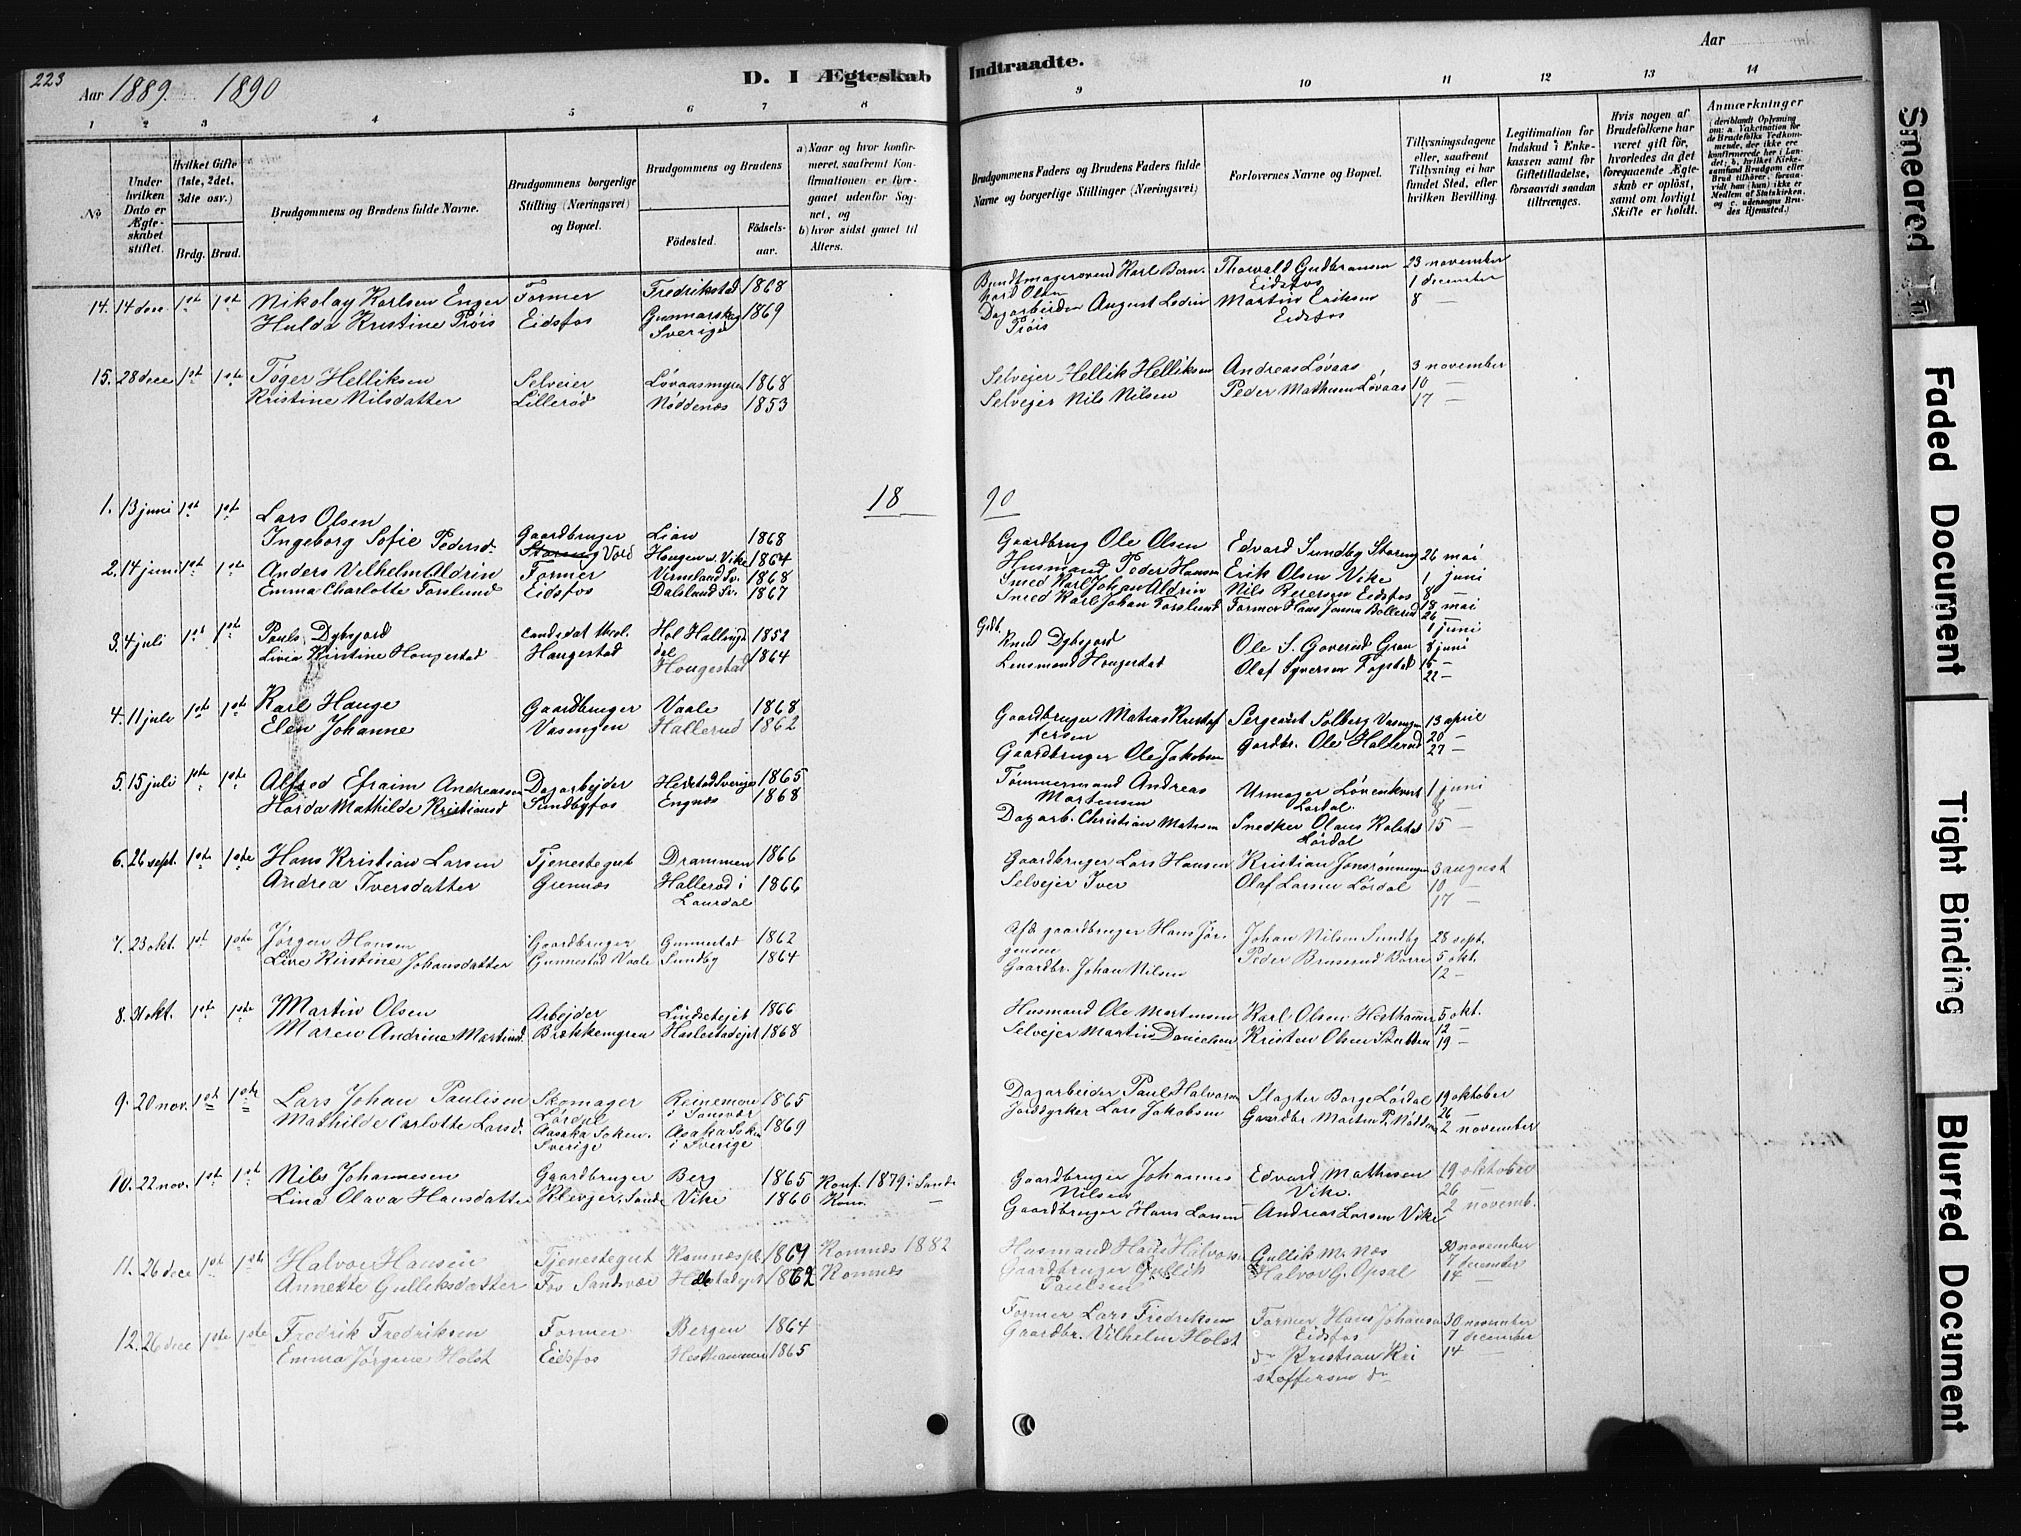 223
Aar 1889. 1890
D. I Ægteskab Indtraadte.
Aar
1 2 3 4 5 6 7 8 9 10 11 12 13 14
No
Under hvilken Dato er Ægteskabet stiftet.
Hvilket Gifte (1ste, 2det, 3die osv.)
Brdg. Brud.
Brudgommens og Brudens fulde Navne.
Brudgommens borgerlige Stilling (Næringsvei) og Bopæl.
Brudgommens og Brudens
Fødested.
Fødselsaar.
a) Naar og hvor konfirmeret, saafremt Konfirmationen er foregaaet udenfor Sognet, og
b) hvor sidst gaaet til Alters.
Brudgommens Faders og Brudens Faders fulde Navne og borgerlige Stillinger (Næringsvei)
Forlovernes Navne og Bopæl.
Tillysningsdagene eller, saafremt Tillysning ei har fundet Sted, efter hvilken Bevilling.
Legitimation for Indskud i Enkekassen samt for Giftetilladelse, forsaavidt saadan tiltrænges.
Hvis nogen af Brudefolkene har været gift før, hvorledes da det foregaaende Ægteskab er opløst, samt om lovligt Skifte er holdt.
Anmærkninger (deriblandt Oplysning om: a. Vakcination for de Brudefolks Vedkommende, der ikke ere konfirmerede her i Landet; b. hvilket Kirkesamfund Brudgom eller Brud tilhører, forsaavidt han (hun) ikke er Medlem af Statskirken, og c. udensogns Brudes Hjemsted.)
14. 14 dece 1ste 1ste Nikolay Karlsen Enger Former Fredrikstad 1868 Karl Born- Thorvald Gudbransen 23 november
Hulda Kristine Prois Eidsfos Gunnarskog Sverige 1869 Dagarbeider August Ledin Prois Eidsfos 1 december
Martin Eriksen Eidsfos 8 —
15. 28 dece 1ste 1ste Tøger Helliksen Selveier Løvaasmyren 1868 Selvejer Hellik Helliksen Andreas Løvaas 3 november
Kristine Nilsdatter Lillerød Nøddenæs 1853 Selvejer Nils Nilsen Peder Mathisen Løvaas 10 —
17 —
1890
1. 13 juni 1ste 1ste Lars Olsen Gaardbruger Lian 1868 Gaardbrug Ole Olsen Edvard Sundby Storeng 26 mai
Ingeborg Sofie Pedersd. Vold Haugen v. Vike 1864 Husmand Peder Hansen Erik Olsen Vike 1 juni
2. 14 juni 1ste 1ste Anders Vilhelm Aldrin Former Vermland Sv. 1868 Smed Karl Johan Aldrin Nils Petersen Eidsfos 8 —
Emma Charlotte Forslund Eidsfos Dalsland Sv. 1867 Smed Karl Johan Forslund Former Hans Jonna Bollerud 18 mai
26 —
3. 4 juli 1ste 1ste Pauls Dybsjord Haugestad Hol Hallingdal 1852 Gdb. Knud Dybsjord Ole S. Goverud Gran 1 juni
Livia Kristine Haugestad Haugestad 1864 Lensmand Haugestad Olaf Syversen Fogstad 8 juni
15 —
22 —
4. 11 juli 1ste 1ste Karl Hauge Gaardbruger Vaale 1868 Gaardbruger Matias Kristofersen Sergeant Solberg Vasengen 13 april
Elen Johanne Vasengen Hallerud 1862 Gaardbruger Ole Jakobsen Gardbr. Ole Hallerud 20 —
27 —
5. 15 juli 1ste 1ste Alfred Efraim Andreassen Dagarbejder Sverige 1865 Tømmermand Andreas Mortensen Urmager Løvenkvist Lørdal 1 juni
Harda Mathilde Kristiansd Sundbyfos Engnæs 1868 Dagarb. Christian Matisen Snedker Olaus Kolstad Lørdal 8 —
15 —
6. 26 sept. 1ste 1ste Hans Kristian Larsen Tjenestegut Drammen 1866 Gaardbruger Lars Hansen Kristian Jonsrønningen 3 august
Andrea Iversdatter Grennæs Hallerød i Laurdal 1866 Selvejer Iver Olaf Larsen Lørdal 10 —
17 —
7. 23 okt. 1ste 1ste Jørgen Hansen Gaardbruger Gunnestad 1862 Afd gaardbruger Hans Jørgensen Johan Nilsen Sundby 28 sept.
Live Kirstine Johansdatter Gunnestad Vaale Sundby 1864 Gaardbr. Johan Nilsen Peder Bruserud Borre 5 okt.
12 —
8. 31 okt. 1ste 1ste Martin Olsen Arbejder 1866 Husmand Ole Martinsen Karl Olsen Hesthamer 5 okt.
Maren Andrine Martinsd. Brækkemyren Haslestadejet 1868 Selvejer Martin Danielsen Kristen Olsen Stubben 12 —
19 —
9. 20 nov. 1ste 1ste Lars Johan Paulisen Skomager Lørdal Reinemoen i Sansvær 1865 Dagarbeider Paul Halvorsen Slagter Borge Lørdal 19 oktober
Mathilde Carlotte Larsd. Aasaka Soken. Sverige Asaka Soken i Sverige 1869 Jorddyrker Lars Jakobsen Gaardbr Martin P. Nødden 26 —
2 november
10. 22 nov. 1ste 1ste Nils Johannesen Gaardbruger Berg 1865 Konf. 1879 i Sande Gaardbruger Johannes Nilsen Edvard Mathisen Vike. 19 oktober
Lina Olava Hansdatter Klevjer, Sande Vike 1860 Kom. — Gaardbruger Hans Larsen Andreas Larsen Vike 26 —
2 novemb.
11. 26 dece 1ste 1ste Halvor Hansen Tjenestegut Komnæspl. 1869 Komnæs 1882 Husmand Hans Halvors Gullik M. Næs 30 november
Annette Gulliksdatter Fos Sandsvær 1862 Komnæs Gaardbruger Gullik Paulsen Halvor G. Opsal 7 december
14 —
12. 26 dece 1ste 1ste Fredrik Fredriksen Former Bergen 1864 Former Lars Fredriksen Former Hans Johansen Eidsfos 30 november
Emma Jørgine Holst Eidsfos Hesthammer 1865 Gaardbr. Vilhelm Holst do Kristian Kristoffersen do 7 december
14 —
Smeared In
Faded Document
Tight Binding
Blurred Document